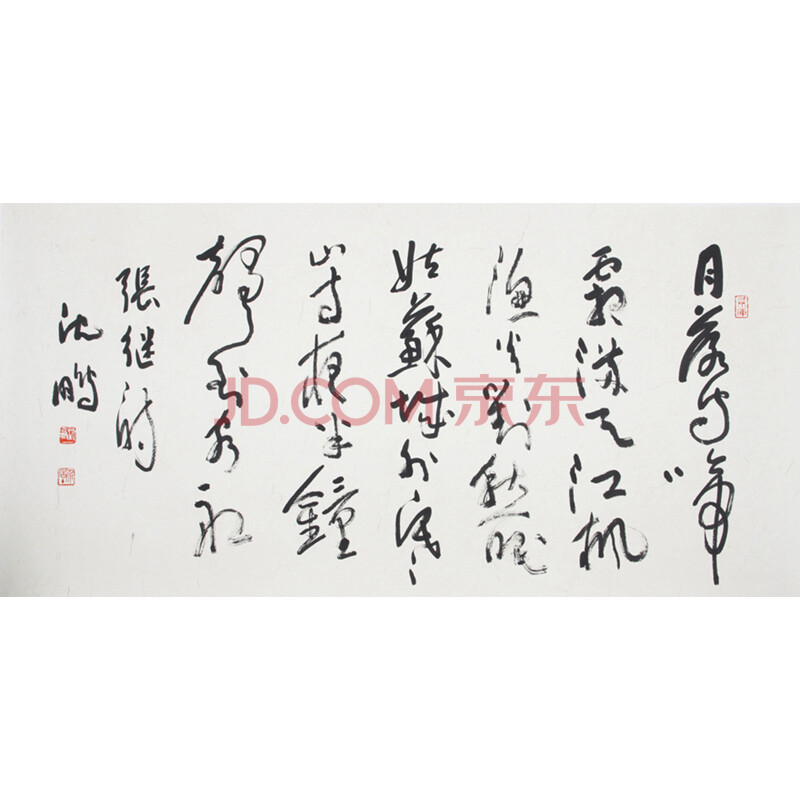 月落乌啼
霜满天江枫
渔火對愁眠
姑蘇城外寒
山寺夜半鐘
聲到客船
張继诗
沈鹏
JD.COM 京东